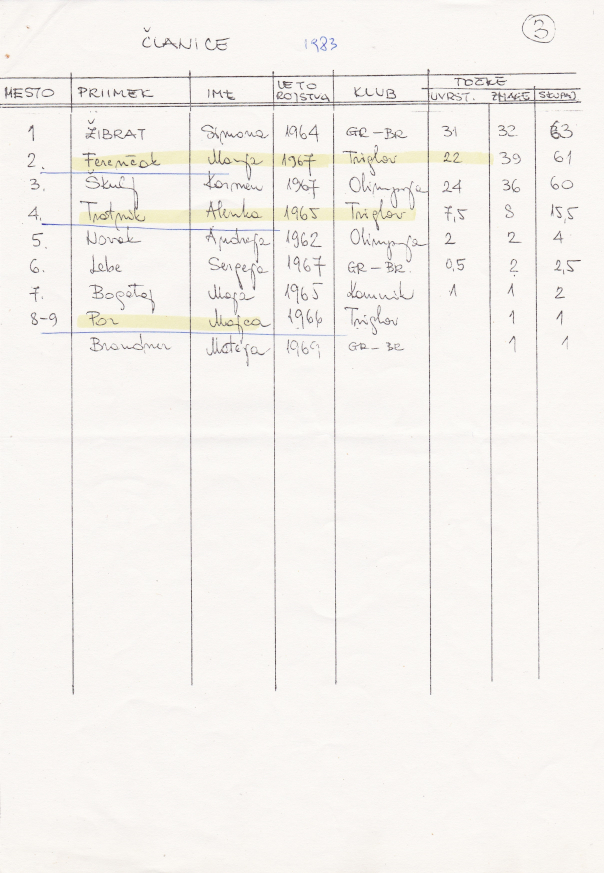 3
ČLANICE 1983
TOČKE
MESTO PRIIMEK IME LETO ROJSTVA KLUB UVRST. ZMAGE SKUPAJ
1 ŽIBRAT Simona 1964 GR-BR 31 32 63
2. Ferenčak Marja 1967 Triglav 22 39 61
3. Škulj Karmen 1967 Olimpija 24 36 60
4. Trotnik Alenka 1965 Triglav 7,5 8 15,5
5. Novak Andreja 1962 Olimpija 2 2 4
6. Lebe Sergeja 1967 GR-BR 0,5 2 2,5
7. Bogataj Maja 1965 Kamnik 1 1 2
8-9 Por Mojca 1966 Triglav 1 1
Brandner Mateja GR-BR 1 1